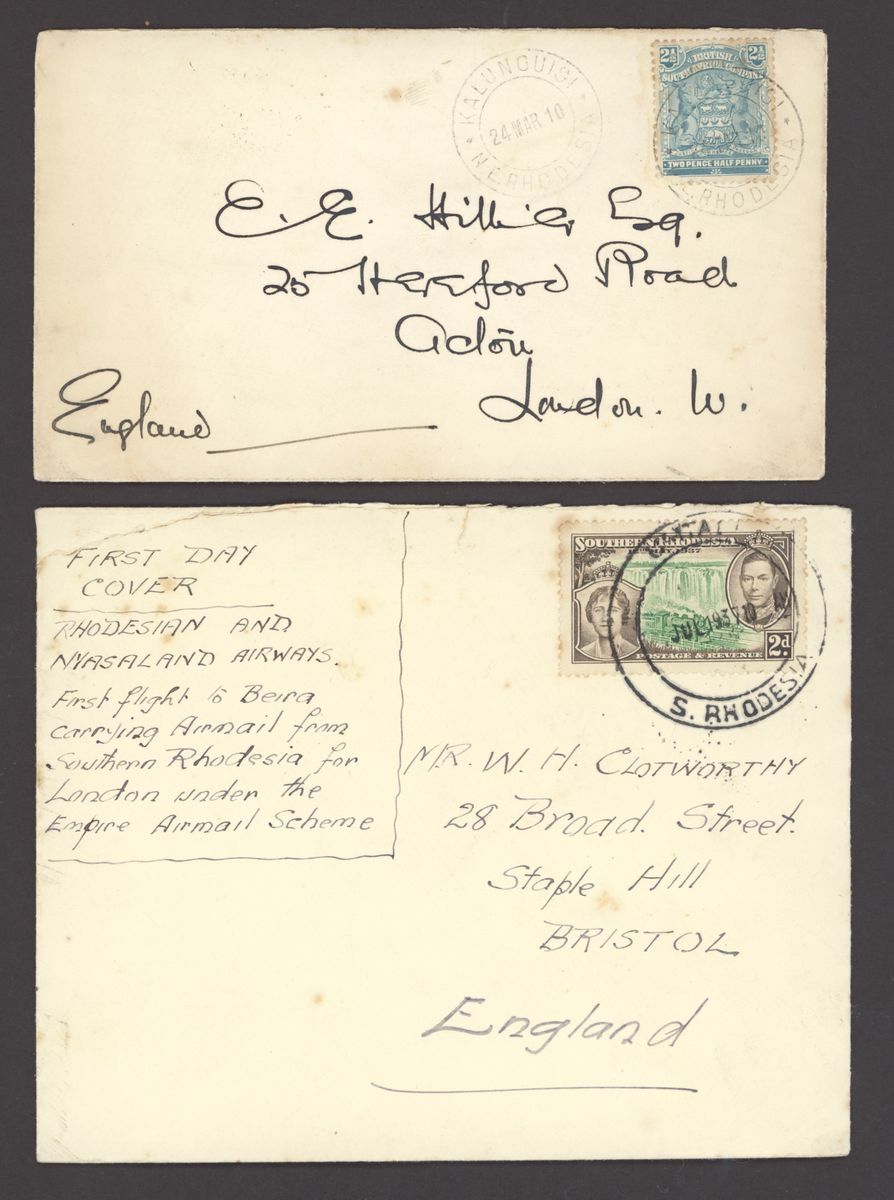 KALUNGUISI
24 MAR 10
N.E. RHODESIA
2½ BRITISH 2½
SOUTH AFRICA COMPANY
TWO PENCE HALF PENNY
RHODESIA
E. E. Hillier Esq.
25 Hereford Road
Acton
London. W.
England
FIRST DAY
COVER
RHODESIAN AND
NYASALAND AIRWAYS.
First flight to Beira
carrying Airmail from
Southern Rhodesia for
London under the
Empire Airmail Scheme
SOUTHERN RHODESIA
12TH MAY. 1937
2d.
POSTAGE & REVENUE
JUL 1937
S. RHODESIA
MR. W. H. CLOTWORTHY
28 Broad. Street.
Staple Hill
BRISTOL
England